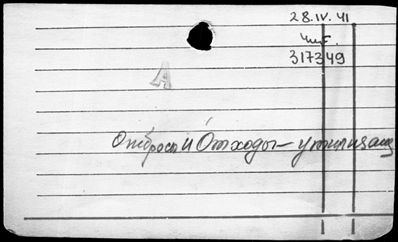 28.IV.41
Чит.
317349
А
Отбросы и Отходы - утилизац